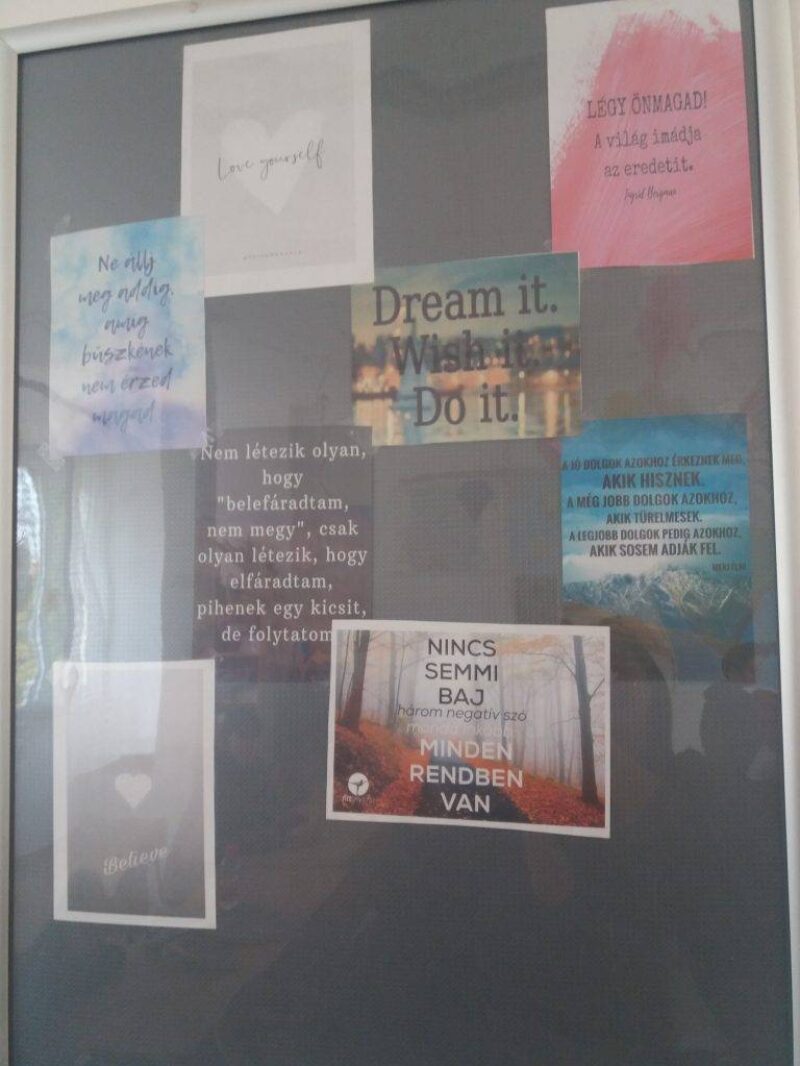 Love yourself
LÉGY ÖNMAGAD!
A világ imádja
az eredetit.
Ingrid Bergman
Ne állj
meg addig,
amíg
büszkének
nem érzed
magad
Dream it.
Wish it.
Do it.
Nem létezik olyan,
hogy
"belefáradtam,
nem megy", csak
olyan létezik, hogy
elfáradtam,
pihenek egy kicsit,
de folytatom
A JÓ DOLGOK AZOKHOZ ÉRKEZNEK MEG,
AKIK HISZNEK.
A MÉG JOBB DOLGOK AZOKHOZ,
AKIK TÜRELMESEK.
A LEGJOBB DOLGOK PEDIG AZOKHOZ,
AKIK SOSEM ADJÁK FEL.
NINCS
SEMMI
BAJ
három negatív szó
MINDEN
RENDBEN
VAN
Believe